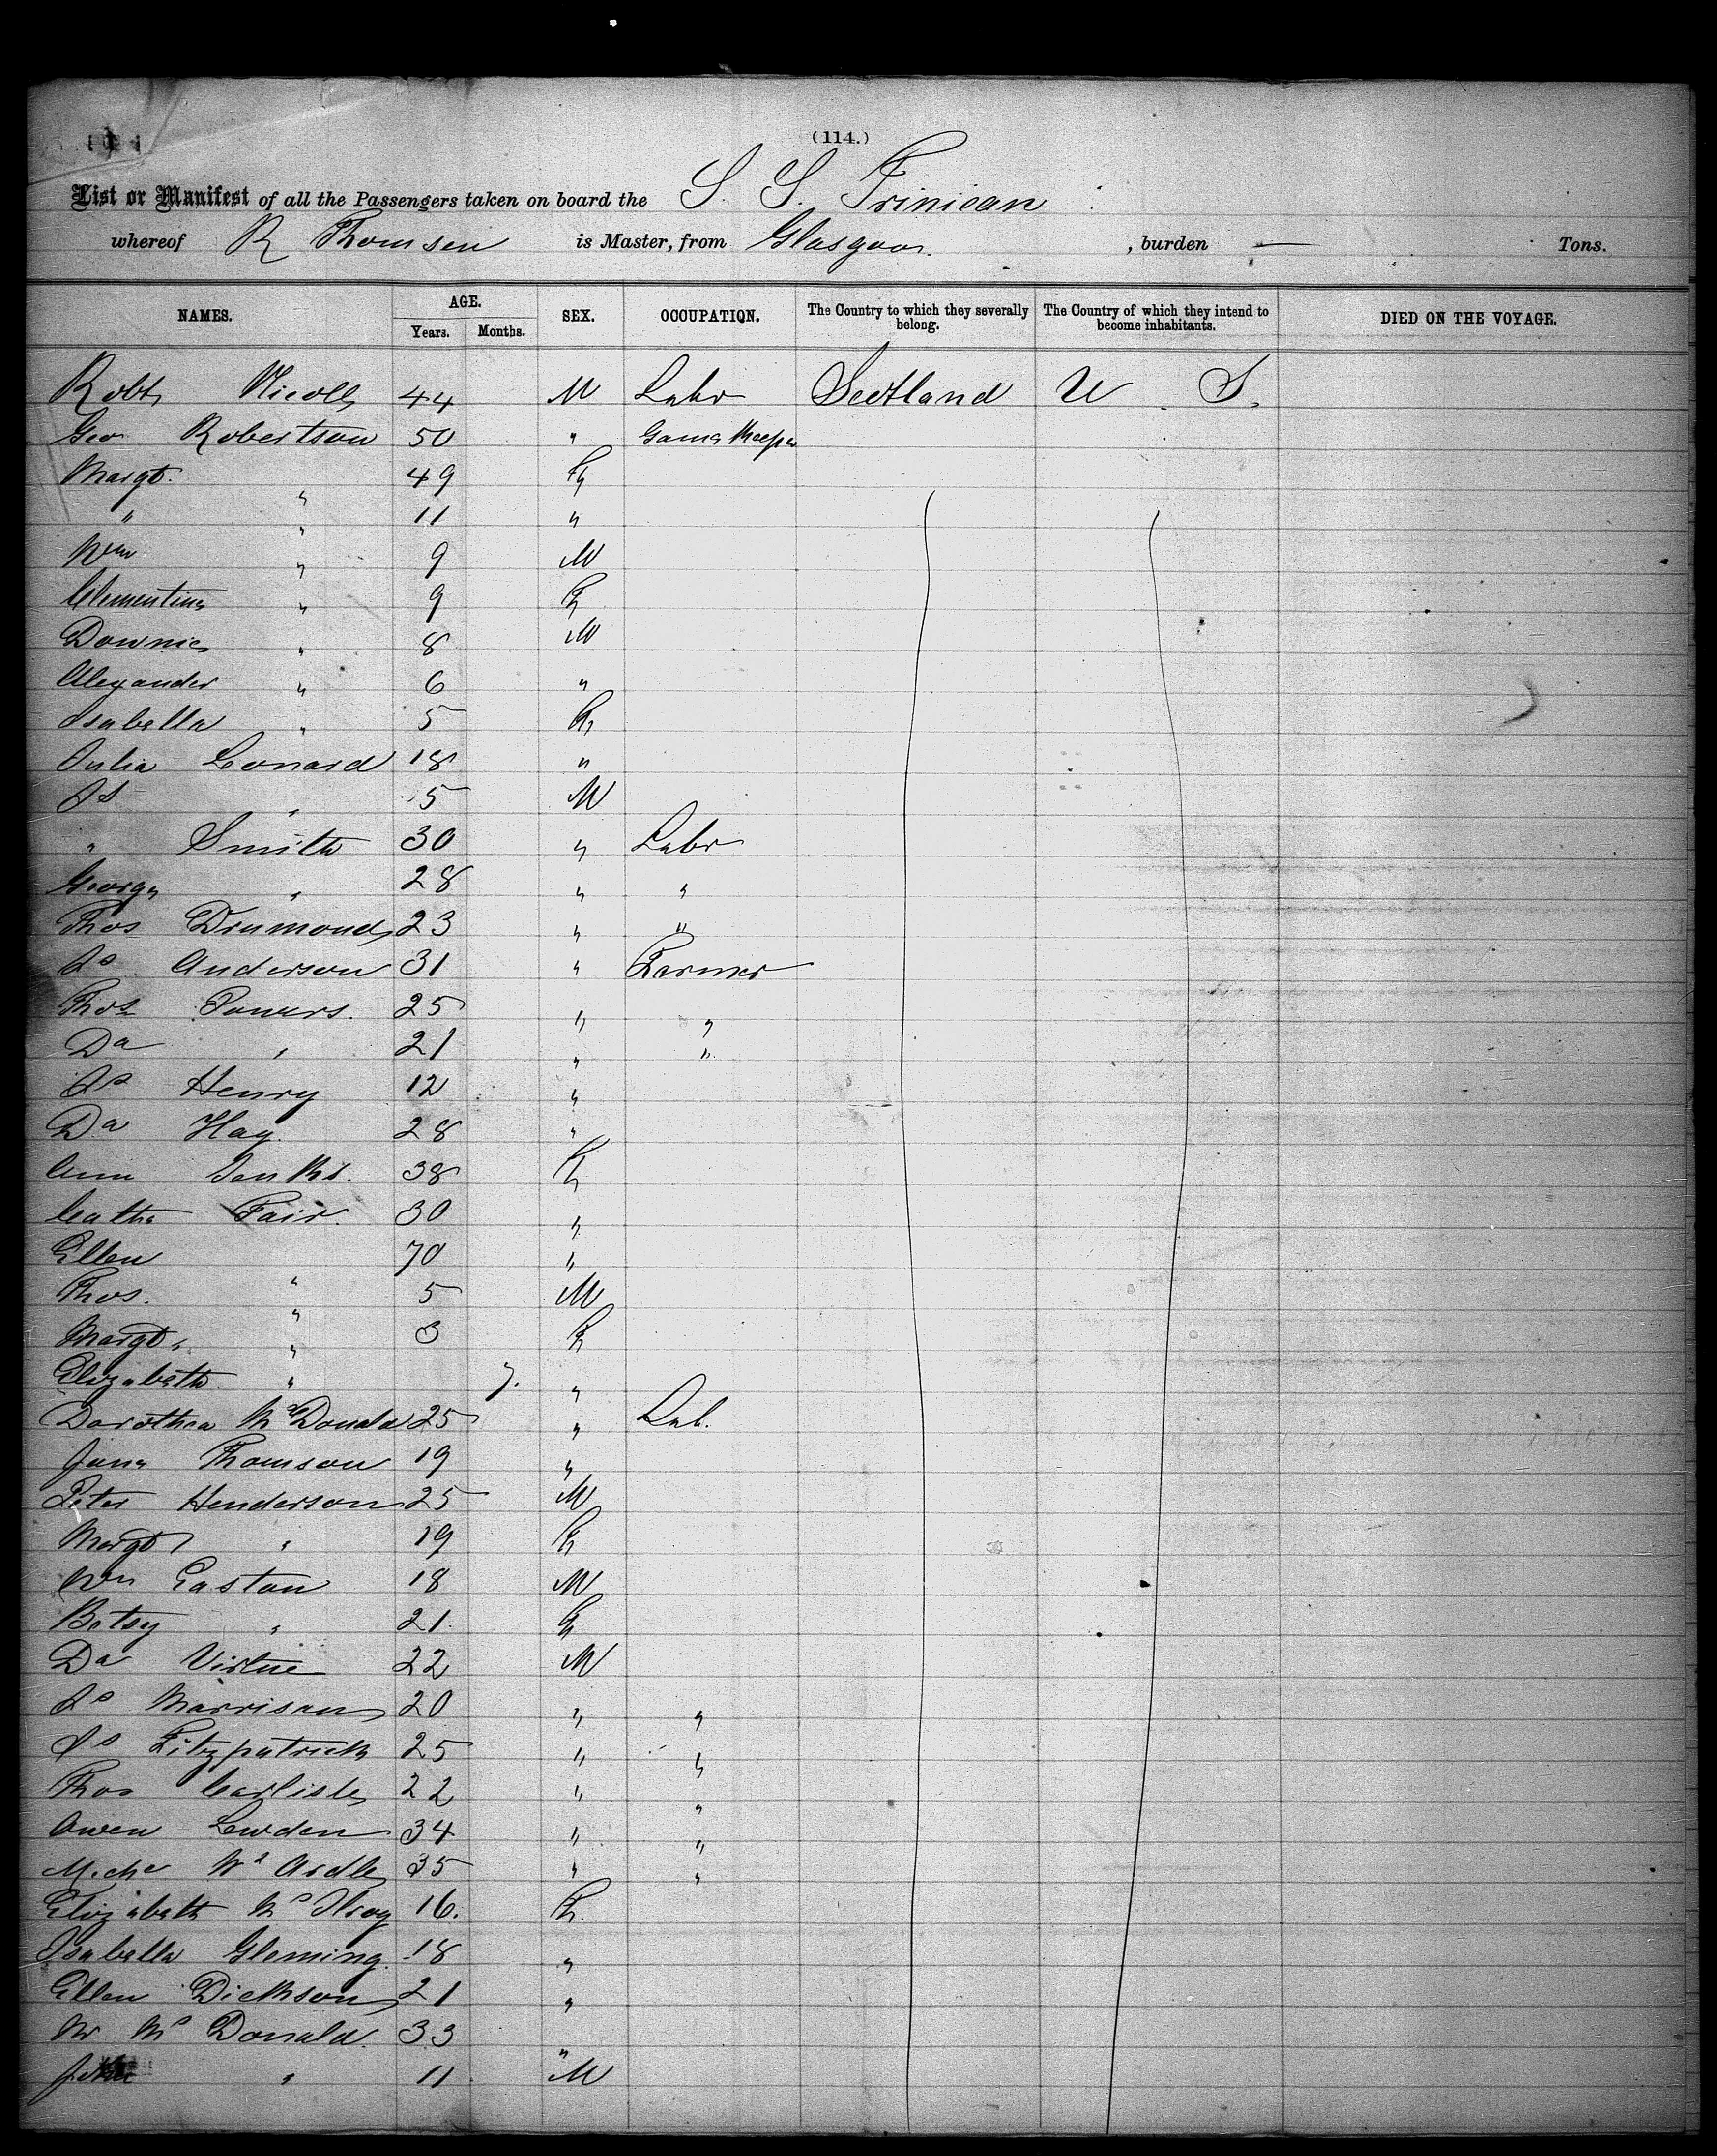 (114.)
List or Manifest of all the Passengers taken on board the S. S. Trinican
whereof R Thomsen is Master, from Glasgow. , burden — Tons.
NAMES. AGE. Years. Months. SEX. OCCUPATION. The Country to which they severally belong. The Country of which they intend to become inhabitants. DIED ON THE VOYAGE.
Robt Nicoll 44 M Labr Scotland U S.
Geo Robertson 50 " Game Keeper
Margt. " 49 F
" " 11 "
Wm " 9 M
Clementina " 9 F
Downie " 8 M
Alexander " 6 "
Isabella " 5 F
Julia Leonard 18 "
Js " 5 M
" Smith 30 " Labr
George " 28 " "
Thos Drumond 23 " "
Js Anderson 31 " Farmer
Thos Powers. 25 " "
Da " 21 " "
Js Henry 12 "
Da Hay. 28 "
Ann Jenks. 38 F
Cathe Fair. 30 "
Ellen " 70 "
Thos. " 5 M
Margt " 3 F
Elizabeth " 7. "
Dorothea McDonald 25 " Lab.
Jane Thomson 19 "
Peter Henderson 25 M
Margt " 19 F
Wm Easton 18 M
Betsy " 21 F
Da Virtue 22 M
Js Morrison 20 " "
Js Fitzpatrick 25 " "
Thos Carlisle 22 " "
Owen Lewden 34 " "
Miche McArdle 35 " "
Elizabeth McIlroy 16. F.
Isabella Gleming. 18 "
Ellen Dickson 21 "
Mr McDonald. 33 "
" 11 M